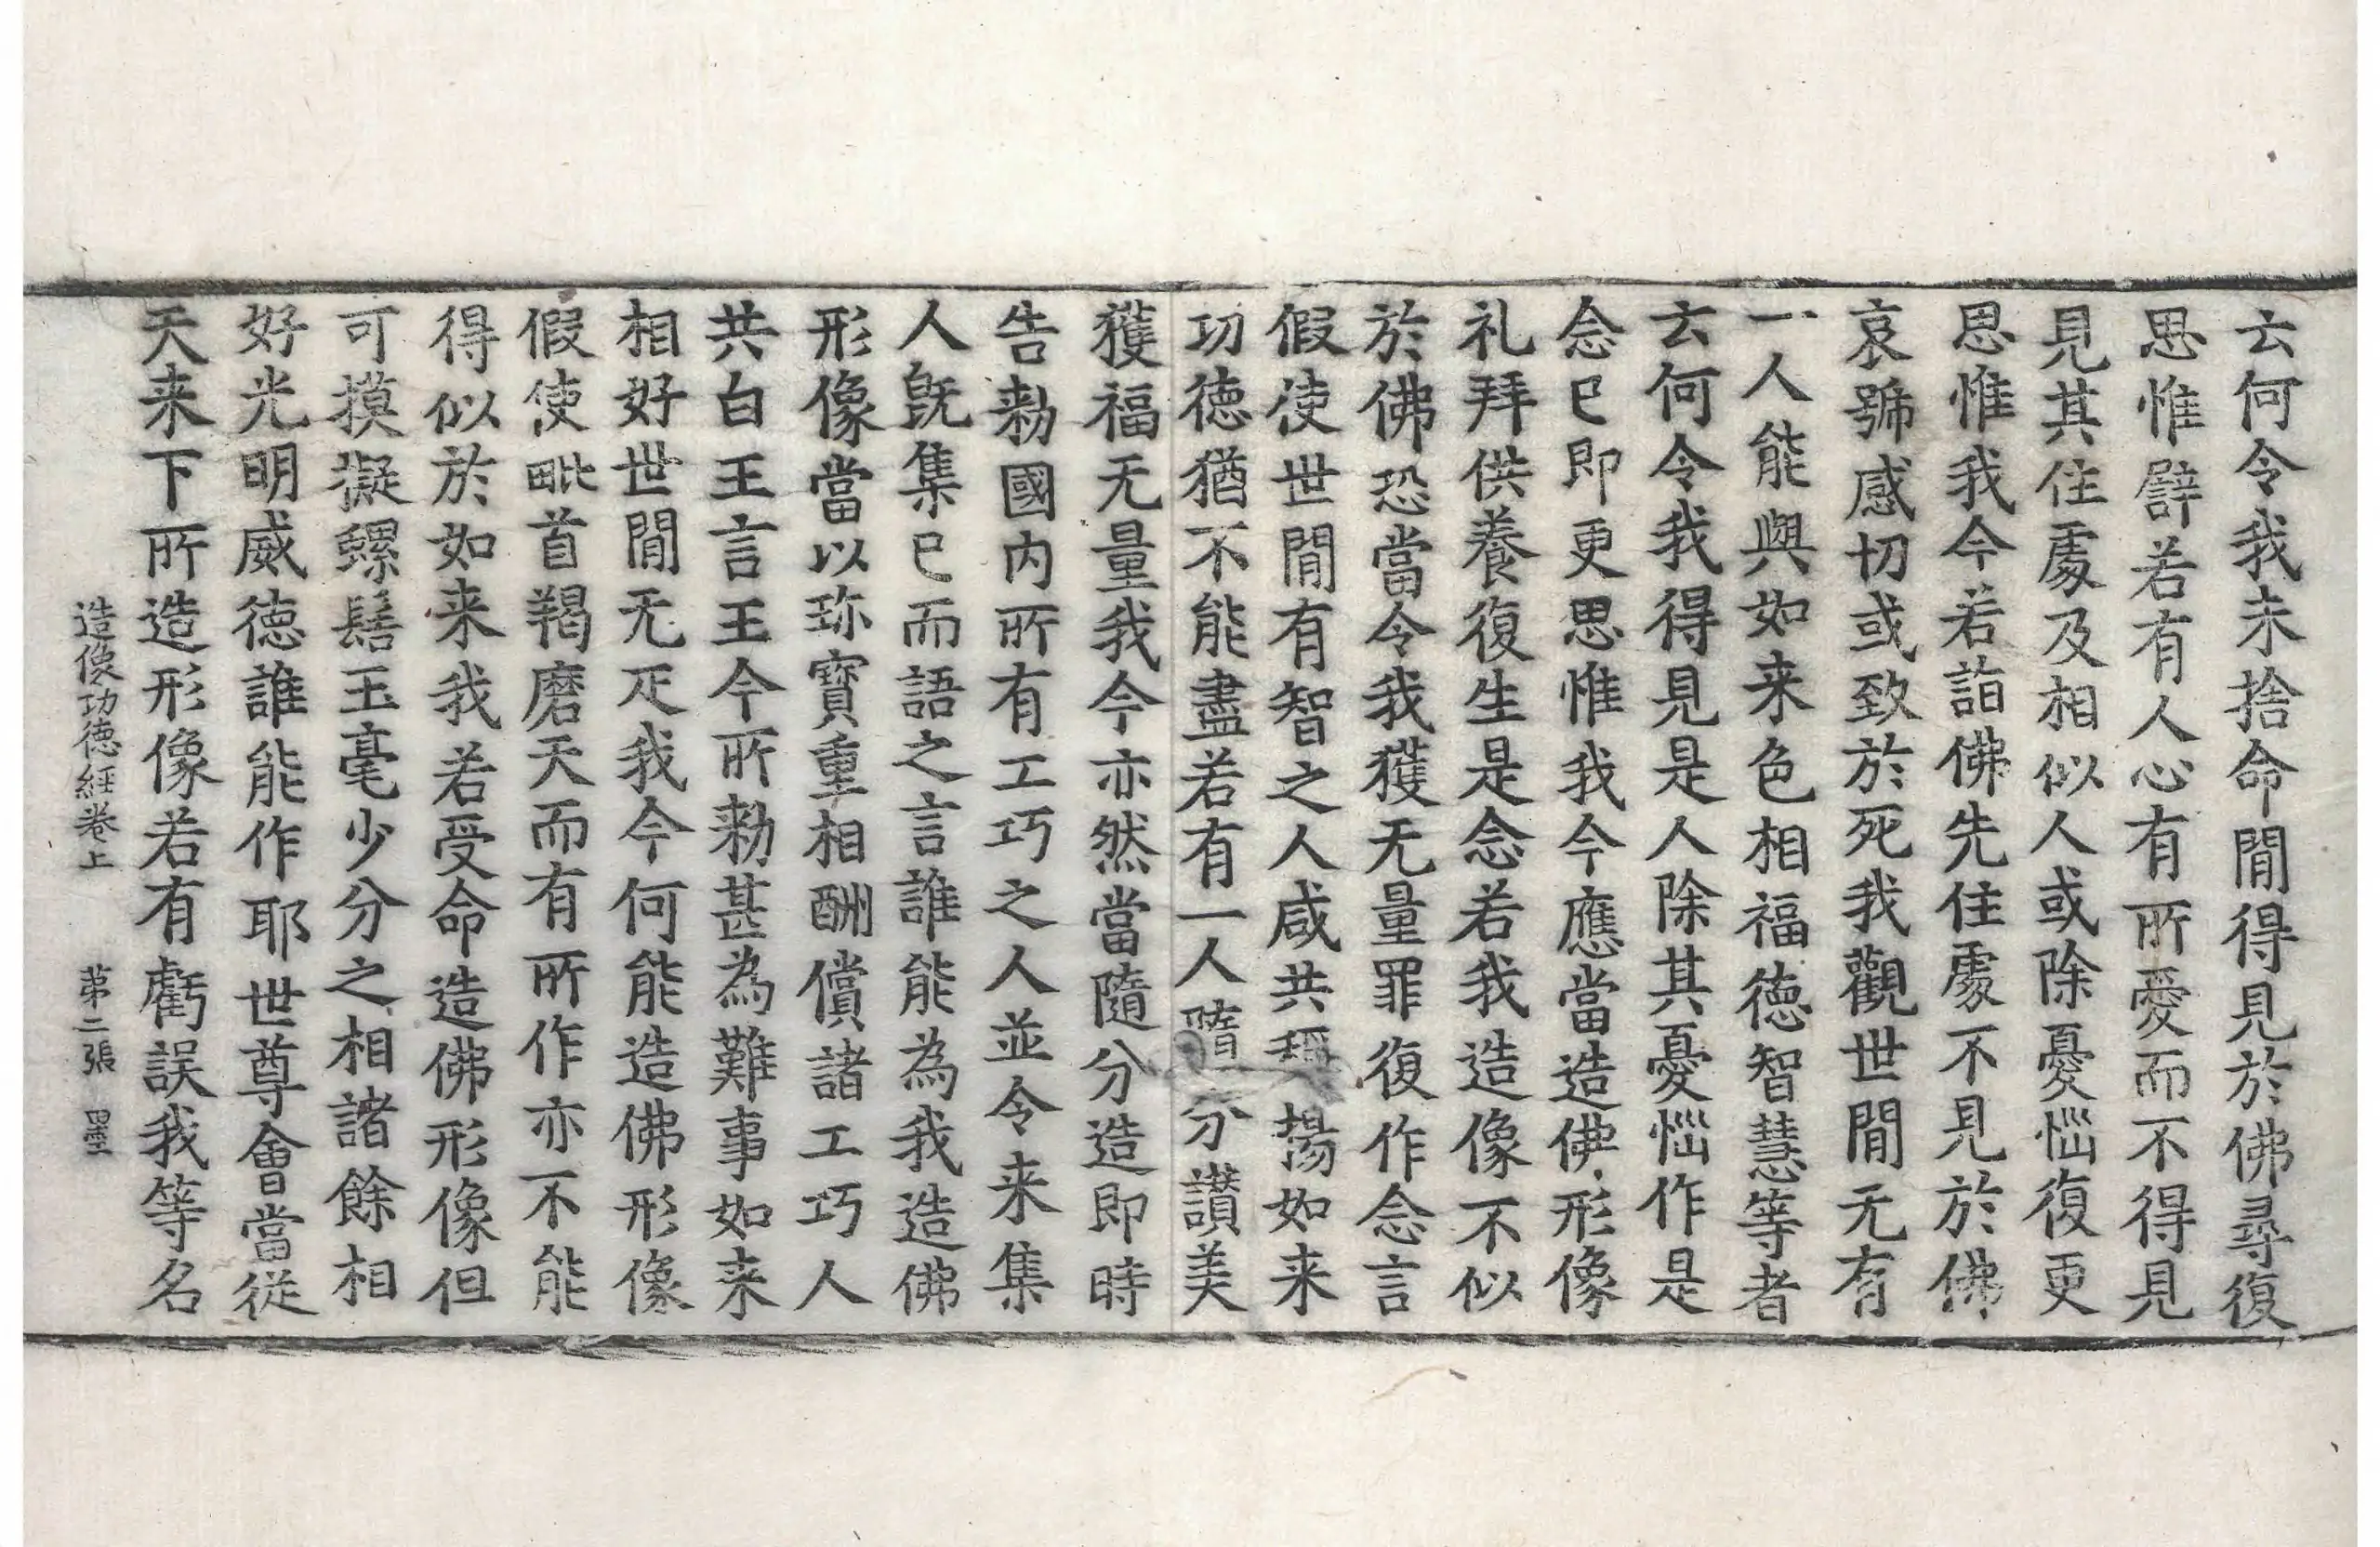 云何令我未捨命閒得見於佛尋復
思惟譬若有人心有所愛而不得見
見其住處及相似人或除憂惱復更
思惟我今若詣佛先住處不見於佛
哀號感切或致於死我觀世閒无有
一人能與如来色相福德智慧等者
云何令我得見是人除其憂惱作是
念已即更思惟我今應當造佛形像
礼拜供養復生是念若我造像不似
於佛恐當令我獲无量罪復作念言
假使世閒有智之人咸共稱揚如来
功德猶不能盡若有一人隨分讃美
獲福无量我今亦然當隨分造即時
告勑國内所有工巧之人並令来集
人旣集已而語之言誰能為我造佛
形像當以珎寶重相酬償諸工巧人
共白王言王今所勑甚為難事如来
相好世閒无疋我今何能造佛形像
假使毗首羯磨天而有所作亦不能
得似於如来我若受命造佛形像但
可摸擬螺髻玉毫少分之相諸餘相
好光明威德誰能作耶世尊會當従
天来下所造形像若有虧誤我等名
造像功德經卷上　第二張　墨